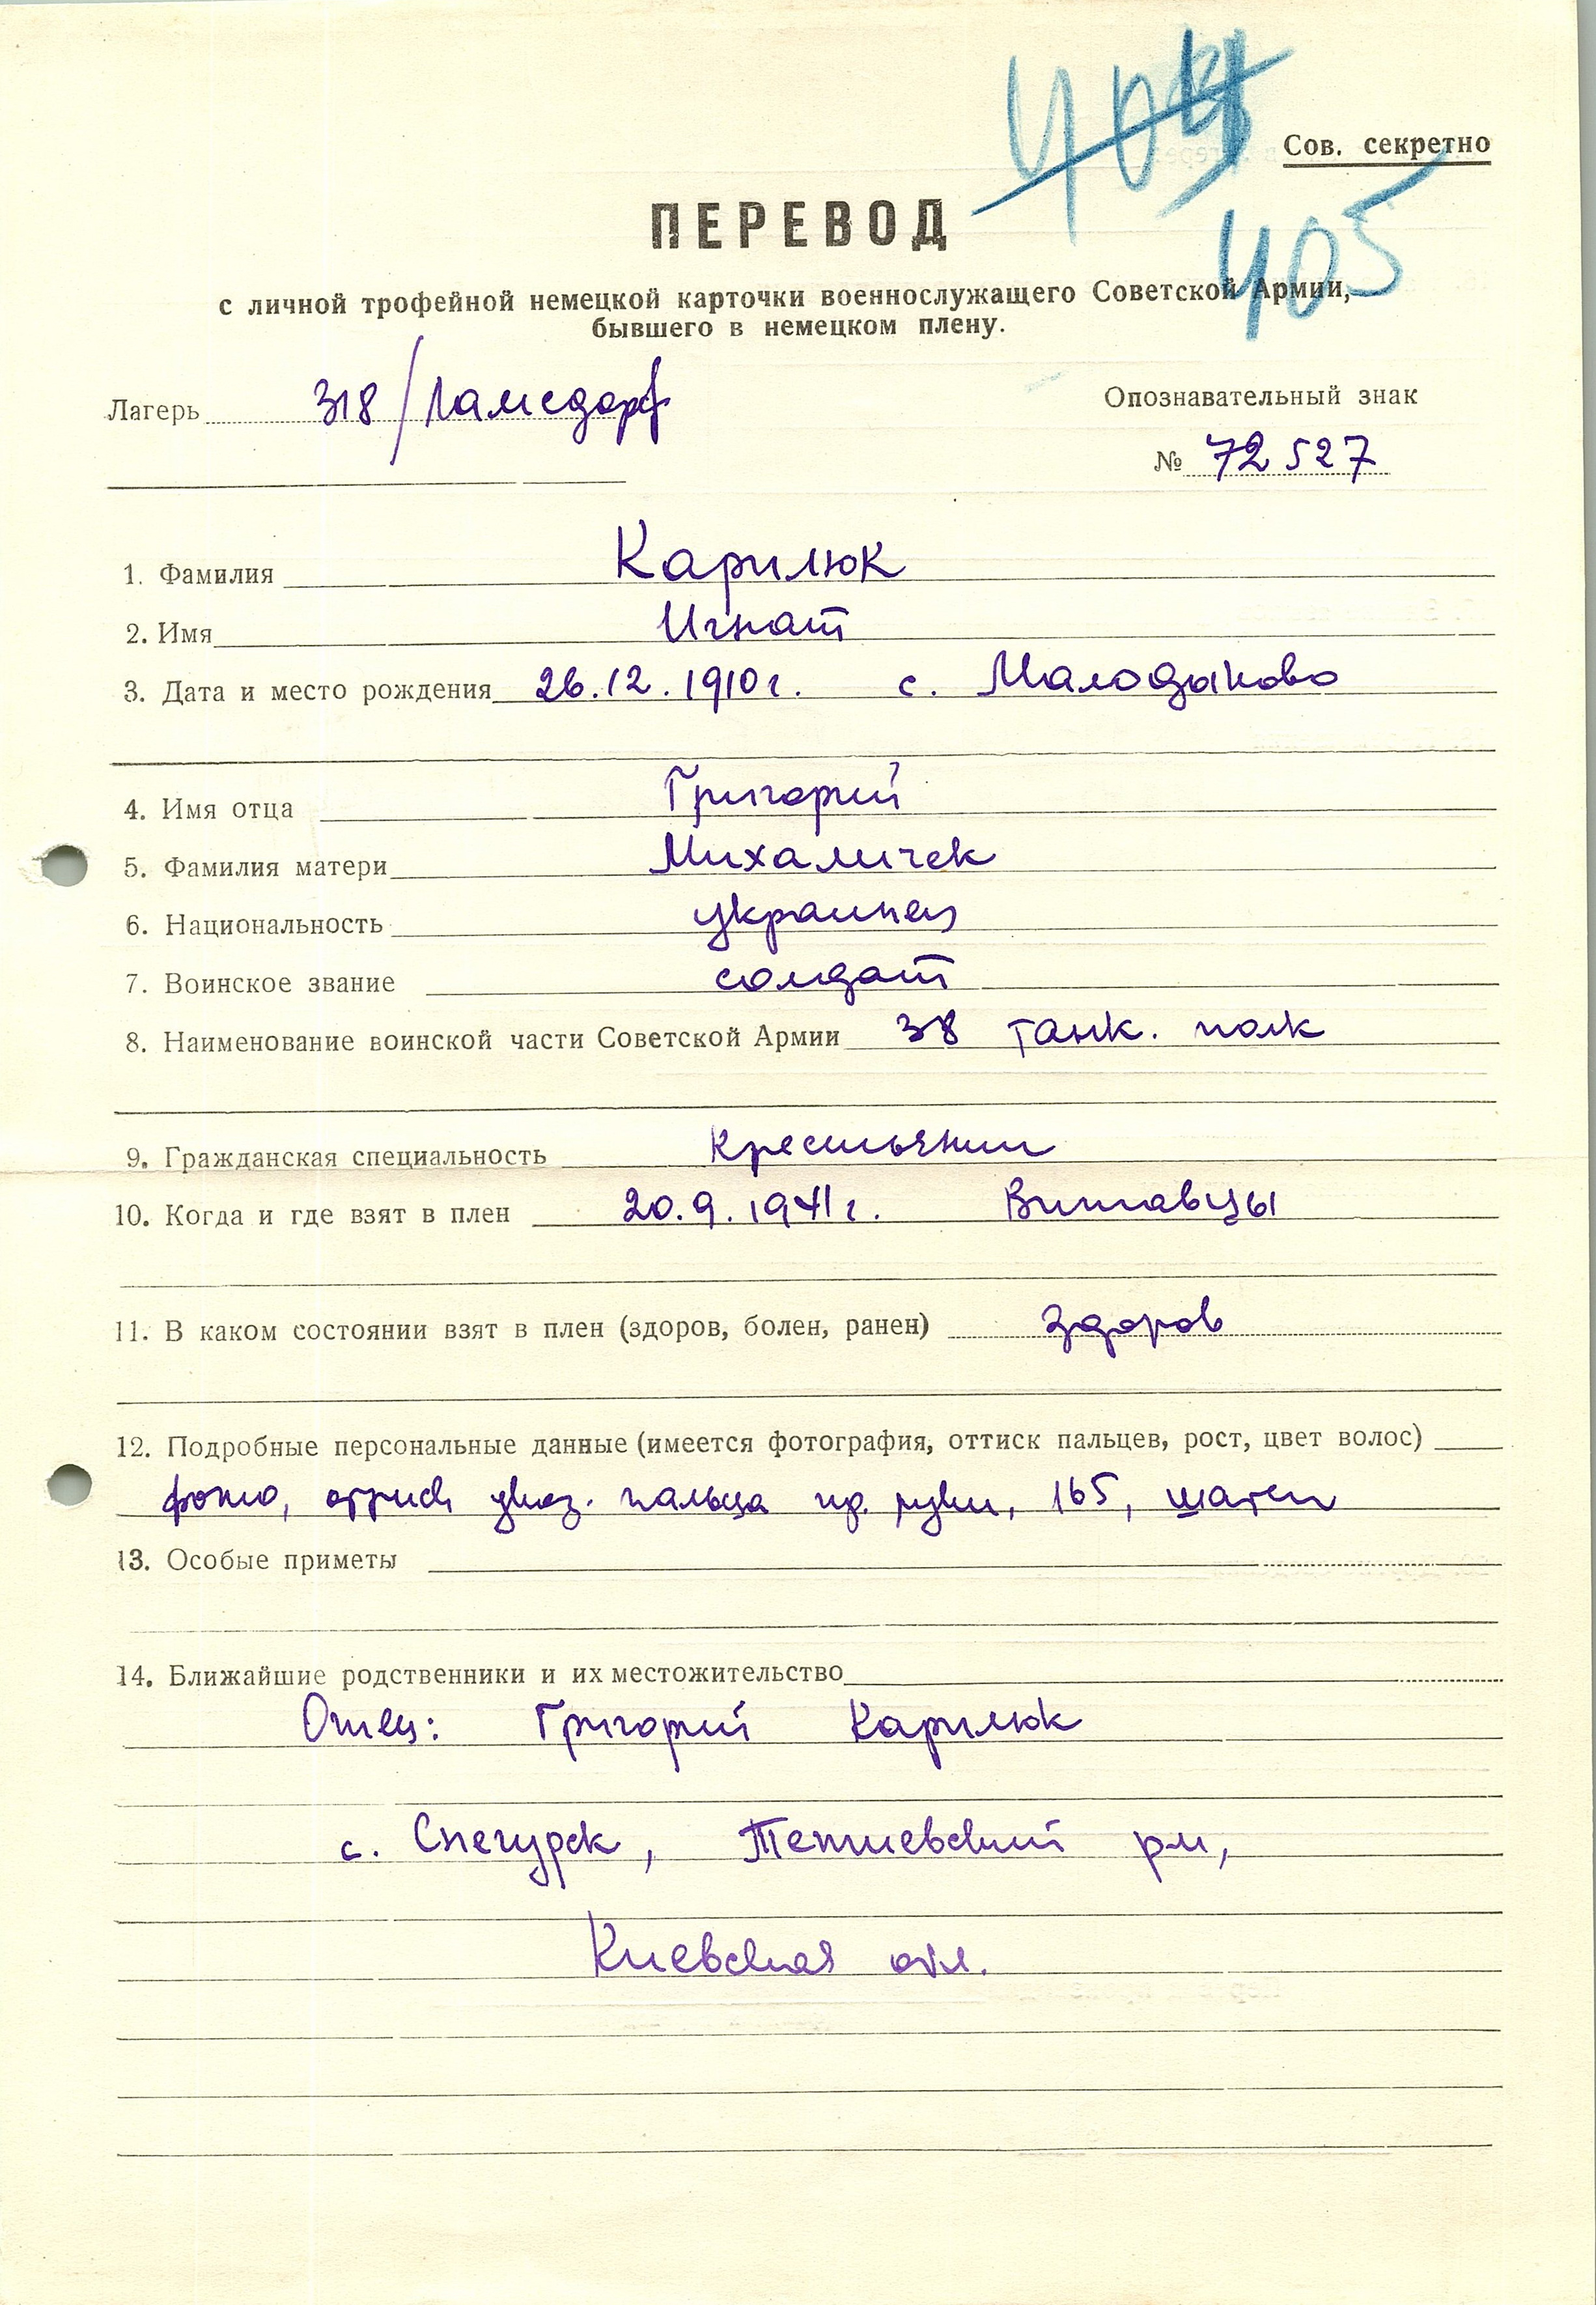 Сов. секретно
405
ПЕРЕВОД
с личной трофейной немецкой карточки военнослужащего Советской Армии,
бывшего в немецком плену.
Лагерь 318/Ламсдорф
Опознавательный знак
№ 72527
1. Фамилия Карилюк
2. Имя Игнат
3. Дата и место рождения 26.12.1910г. с.
4. Имя отца Григорий
5. Фамилия матери Михаличек
6. Национальность украинец
7. Воинское звание солдат
8. Наименование воинской части Советской Армии 38 танк. полк
9. Гражданская специальность Крестьянин
10. Когда и где взят в плен 20.9.1941г.
11. В каком состоянии взят в плен (здоров, болен, ранен) здоров
12. Подробные персональные данные (имеется фотография, оттиск пальцев, рост, цвет волос)
фото, оттиск указ. пальца пр. руки, 165, шатен
13. Особые приметы
14. Ближайшие родственники и их местожительство
Отец: Григорий Карилюк
с. Снегурск, Тетиевский рн,
Киевская обл.